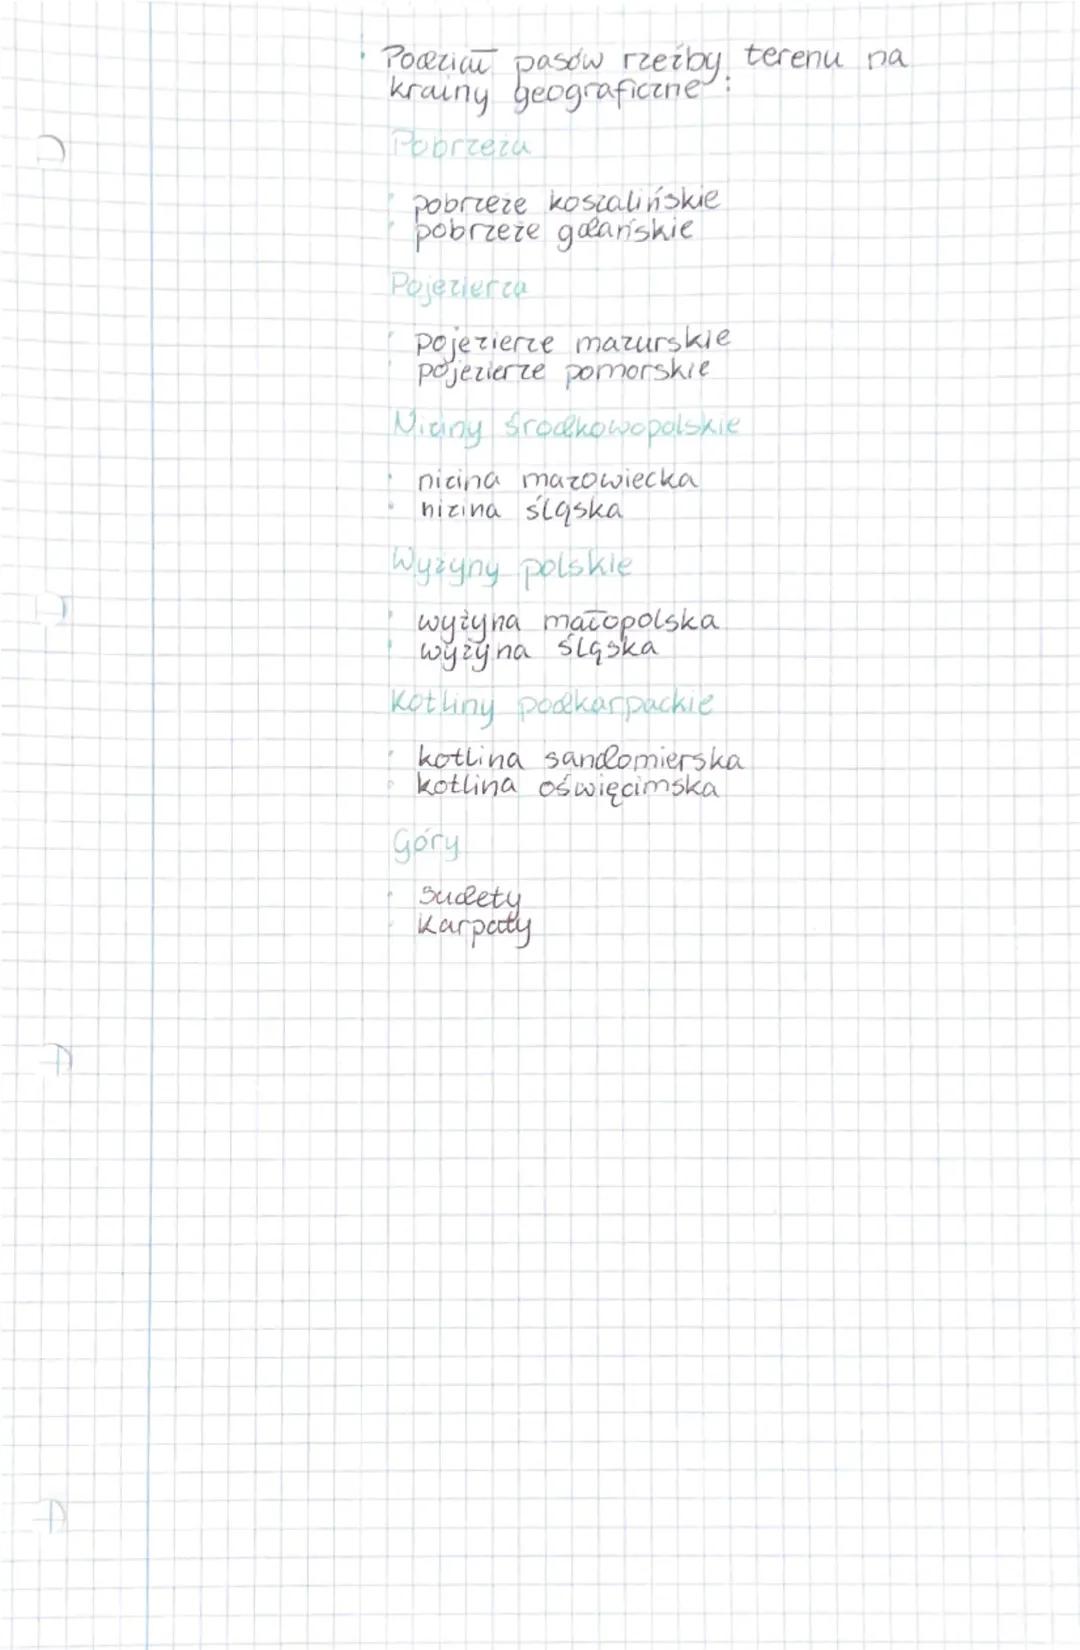 · Podział pasów rzeźby terenu na
krainy geograficzne:
Pobrzeża
· pobrzeże koszalińskie
· pobrzeże gdańskie
Pojezierza
· pojezierze mazurskie
· pojezierze pomorskie
Niziny środkowopolskie
· nizina mazowiecka
· nizina śląska
Wyżyny polskie
· wyżyna małopolska
· wyżyna śląska
Kotliny podkarpackie
· kotlina sandomierska
· kotlina oświęcimska
Góry
· Sudety
· Karpaty